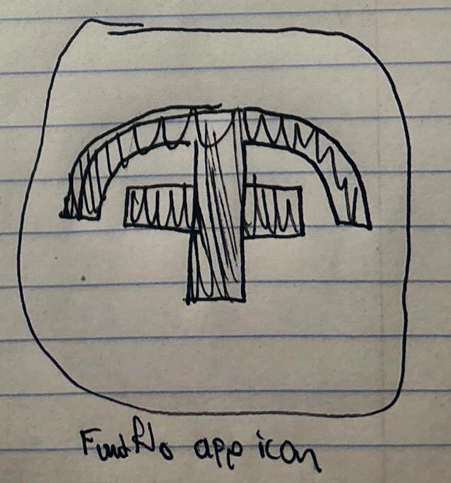 FundFlo app icon